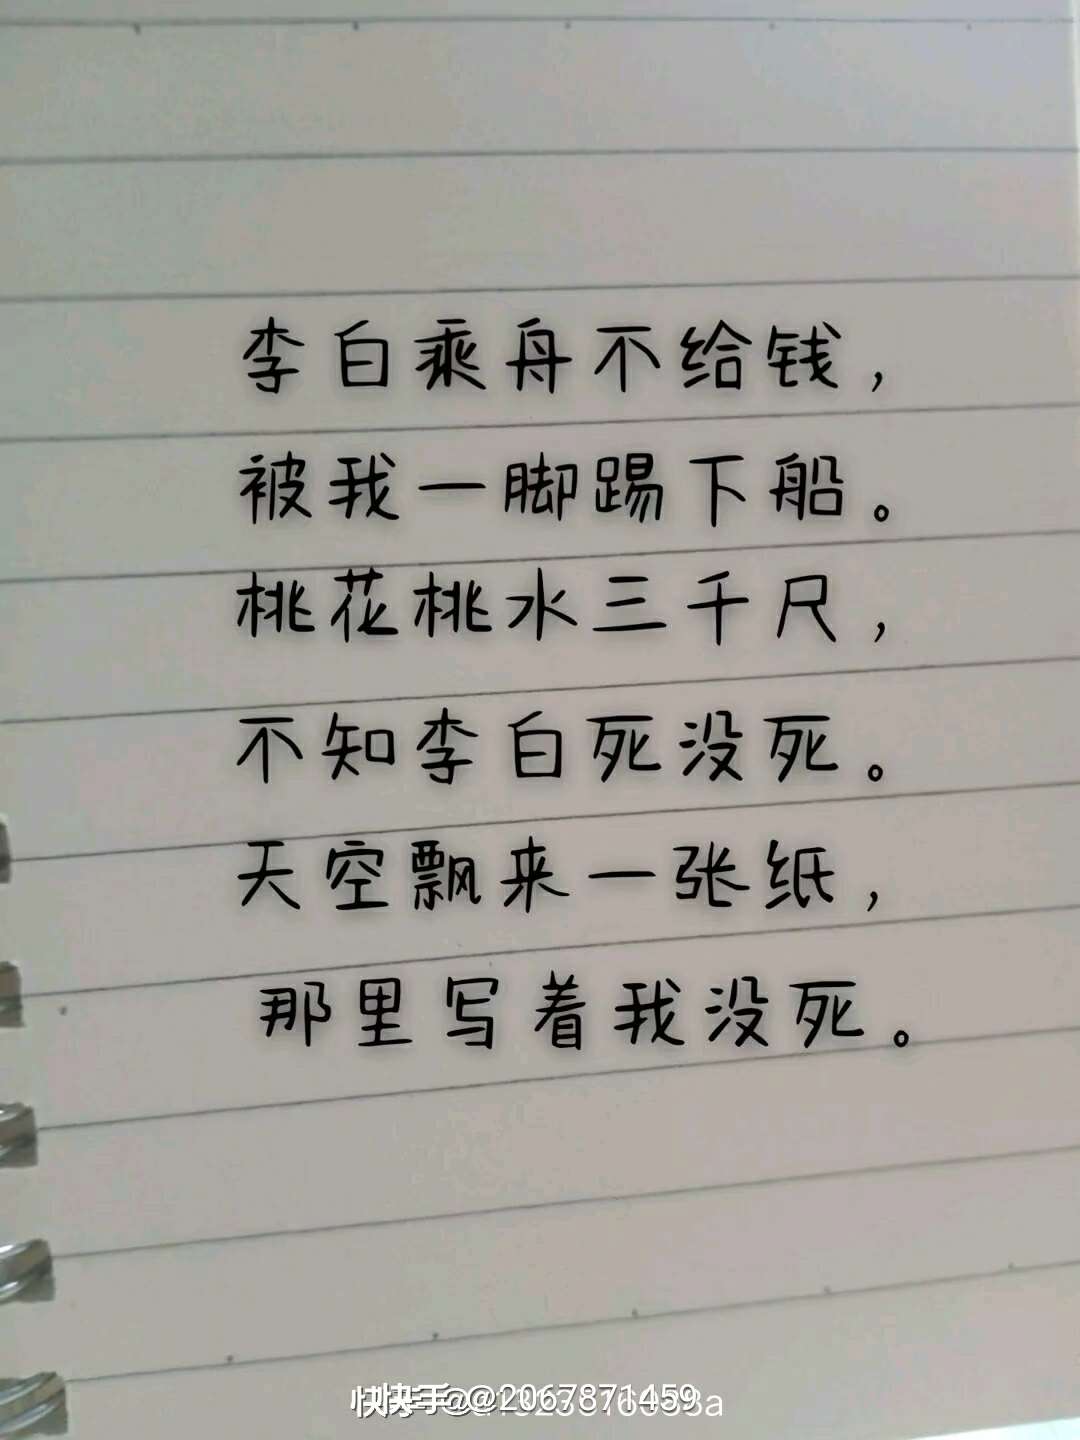 李白乘舟不给钱，
被我一脚踢下船。
桃花桃水三千尺，
不知李白死没死。
天空飘来一张纸，
那里写着我没死。
快手@2067871459